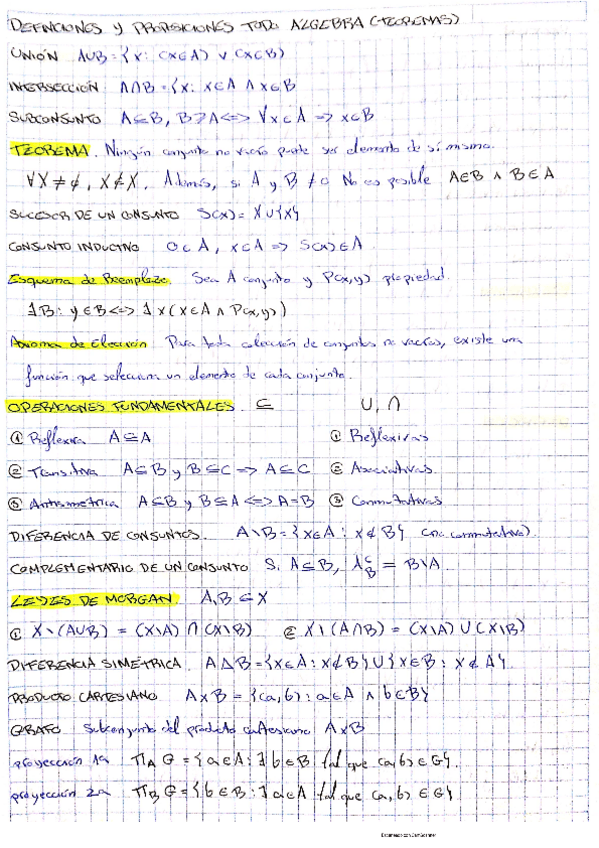 DEFINICIONES y PROPOSICIONES TODO ALGEBRA (TEOREMAS)
UNIÓN A∪B = {x: (x∈A) ∨ (x∈B)
INTERSECCIÓN A∩B = {x: x∈A ∧ x∈B
SUBCONJUNTO A⊆B, B⊇A <=> ∀x∈A => x∈B
TEOREMA. Ningún conjunto no vacío puede ser elemento de sí mismo.
∀X ≠ ∅, X∉X. Además, si A y B ≠ ∅ No es posible A∈B ∧ B∈A
SUCESOR DE UN CONJUNTO S(x) = X∪{X}
CONJUNTO INDUCTIVO 0∈A, x∈A => S(x)∈A
Esquema de Reemplazo. Sea A conjunto y P(x,y) propiedad.
∃B: y∈B <=> ∃x (x∈A ∧ P(x,y))
Axioma de Elección Para toda colección de conjuntos no vacíos, existe una
función que selecciona un elemento de cada conjunto.
OPERACIONES FUNDAMENTALES ⊆ ∪, ∩
① Reflexiva A⊆A ① Reflexivas
② Transitiva A⊆B y B⊆C => A⊆C ② Asociativas
③ Antisimétrica A⊆B y B⊆A <=> A=B ③ Conmutativas
DIFERENCIA DE CONJUNTOS. A\B = {x∈A: x∉B} (no conmutativa)
COMPLEMENTARIO DE UN CONJUNTO Si A⊆B, A_B^c = B\A
LEYES DE MORGAN A,B ⊆ X
① X\(A∪B) = (X\A) ∩ (X\B) ② X\(A∩B) = (X\A) ∪ (X\B)
DIFERENCIA SIMÉTRICA A△B = {x∈A: x∉B} ∪ {x∈B: x∉A}
PRODUCTO CARTESIANO A×B = {(a,b): a∈A ∧ b∈B}
GRAFO Subconjunto del producto cartesiano A×B
proyección 1a Π_A G = {a∈A: ∃b∈B tal que (a,b)∈G}
proyección 2a Π_B G = {b∈B: ∃a∈A tal que (a,b)∈G}
Escaneado con CamScanner